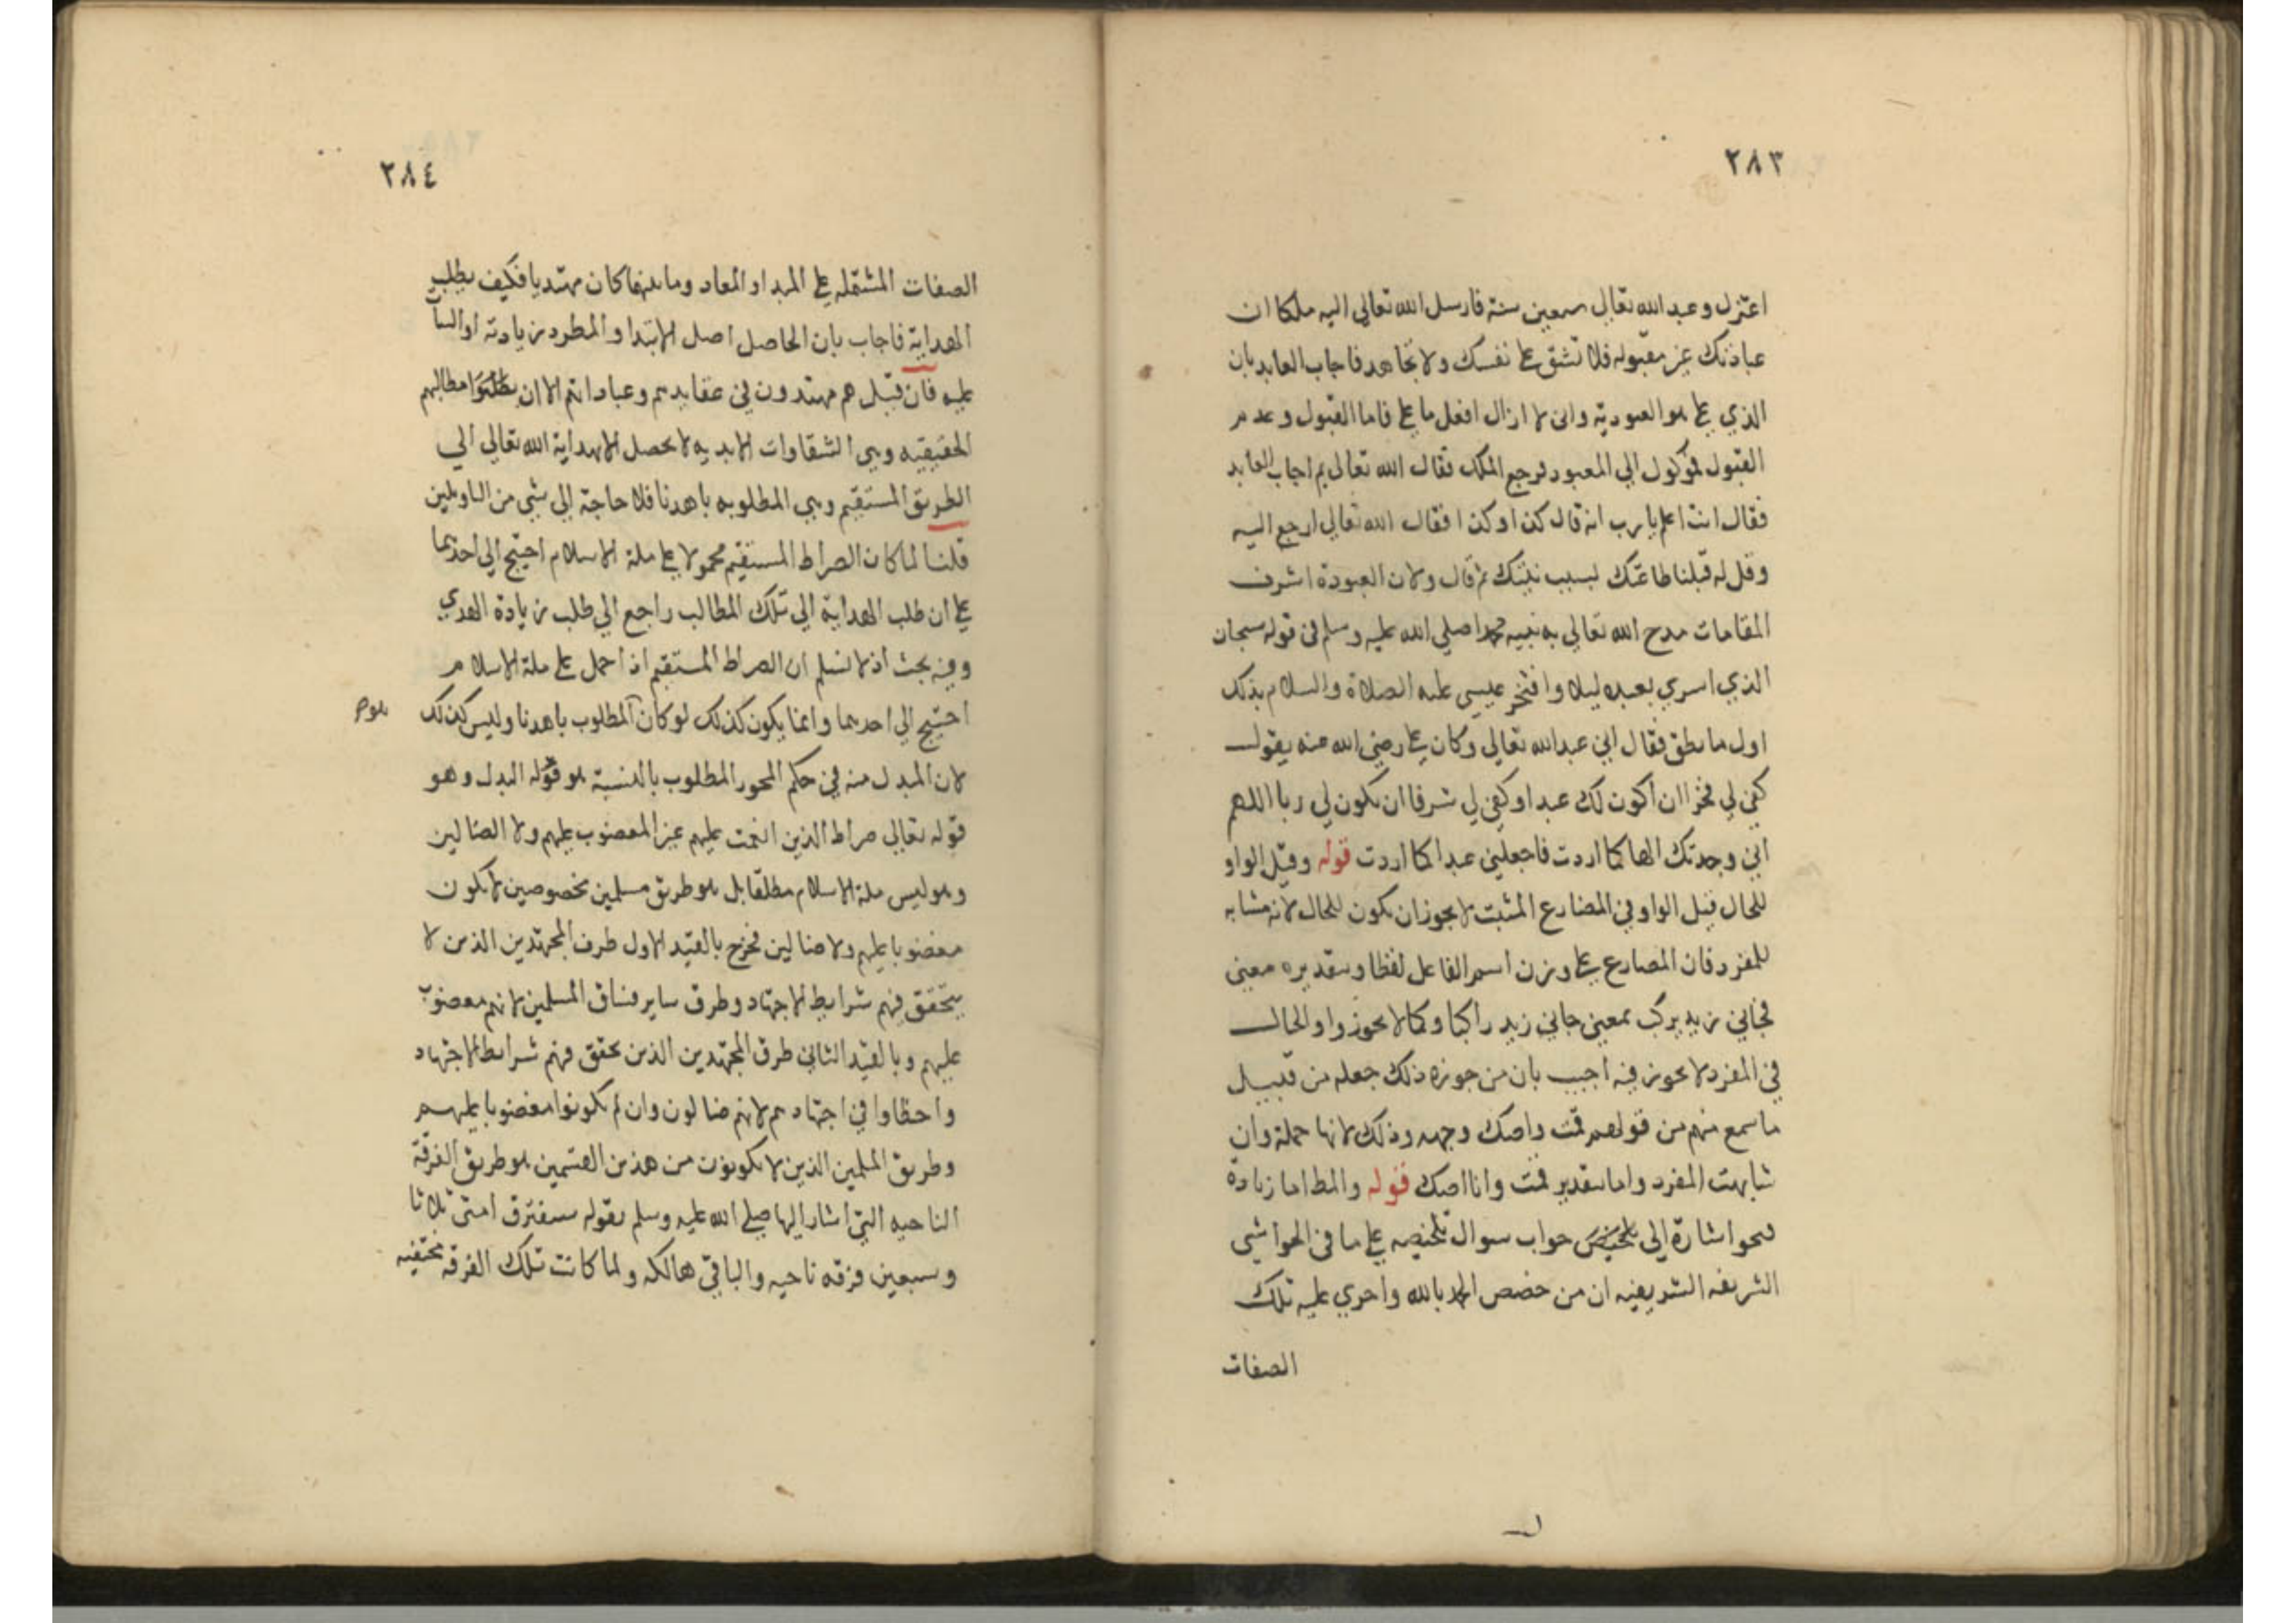 ٢٨٣
اعتزل وعبد الله تعالى سبعين سنة فارسل الله تعالى اليه ملكا ان
عبادتك غير مقبوله فلا تشق على نفسك ولا تجاهد فاجاب العابد بان
الذي على هو العبودية وانى لا ازال افعل ما على فاما القبول وعدم
القبول فموكول الي المعبود فرجع الملك فقال الله تعالى بم اجاب العابد
فقال انت اعلم يا رب انه قال كذا وكذا فقال الله تعالى ارجع اليه
وقل له قبلنا طاعتك بسبب نيتك ثم قال ولان العبودة اشرف
المقامات مدح الله تعالى به نبيه محمدا صلى الله عليه وسلم فى قوله سبحان
الذي اسري بعبده ليلا وافتخر عيسى عليه الصلاة والسلام بذلك
اول ما نطق فقال اني عبد الله تعالي وكان علي رضى الله عنه يقول
كفى لي فخرا ان اكون لك عبدا وكفي لي شرفا ان تكون لي ربا اللهم
اني وجدتك الها كما اردت فاجعلني عبدا كما اردت قوله وقيل الواو
للحال قيل الواو في المضارع المثبت لا يجوز ان تكون للحال لانه مشابه
للمفرد فان المضارع على وزن اسم الفاعل لفظا وبتقديره معنى
فجاني زيد يركب بمعنى جاني زيد راكبا وكما لا يجوز واو الحال
في المفرد لا يجوز فيه اجيب بان من جوزه ذلك جعله من قبيل
ما سمع منهم من قولهم قمت واصك وجهه وذلك لانها جملة وان
شابهت المفرد واما بتقدير قمت وانا اصك قوله والمط اما زيادة
نحو اشارة الى تلخيص جواب سوال تلخيصه على ما في الحواشي
الشريفه الشريفيه ان من خصص الحمد بالله واجري عليه تلك
الصفات
٢٨٤
الصفات المشتمله على المبدا والمعاد وما بينهما كان مهتديا فكيف يطلب
الهداية فاجاب بان الحاصل اصل الاهتدا والمطلوب زيادته او الثبات
عليه فان قيل هم مهتدون في عقايدهم وعباداتهم الا ان يطلبوا مطالبهم
الحقيقيه وهي السعادات الابديه لا يحصل الا بهداية الله تعالى الي
الطريق المستقيم وهي المطلوبه باهدنا فلا حاجة الي شي من التاويلين
قلنا لما كان الصراط المستقيم محمولا على ملة الاسلام احتيج الي احدهما
على ان طلب الهداية الي تلك المطالب راجع الي طلب زيادة الهدي
وفيه بحث اذ لا نسلم ان الصراط المستقيم اذا حمل على ملة الاسلام
احتيج الي احدهما وانما يكون كذلك لو كان المطلوب باهدنا وليس كذلك
لان المبدل منه في حكم المحو والمطلوب بالنسبة هو قوله البدل وهو
قوله تعالى صراط الذين انعمت عليهم غير المغضوب عليهم ولا الضالين
وهو ليس ملة الاسلام مطلقا بل هو طريق مسلمين مخصوصين لا يكون
مغضوبا عليهم ولا ضالين فخرج بالقيد الاول طرف المجتهدين الذين لا
يتحقق فيهم شرايط الاجتهاد وطرق ساير فساق المسلمين لانهم مغضوب
عليهم وبالقيد الثاني طرق المجتهدين الذين تحقق فيهم شرايط الاجتهاد
واخطاوا في اجتهادهم لانهم ضالون وان لم يكونوا مغضوبا عليهم
وطريق المسلمين الذين لا يكونون من هذين القسمين هو طريق الفرقة
الناجيه التي اشار اليها صلى الله عليه وسلم بقوله ستفترق امتى ثلاثا
وسبعين فرقه ناجيه والباقي هالكه ولما كانت تلك الفرقه مختفيه